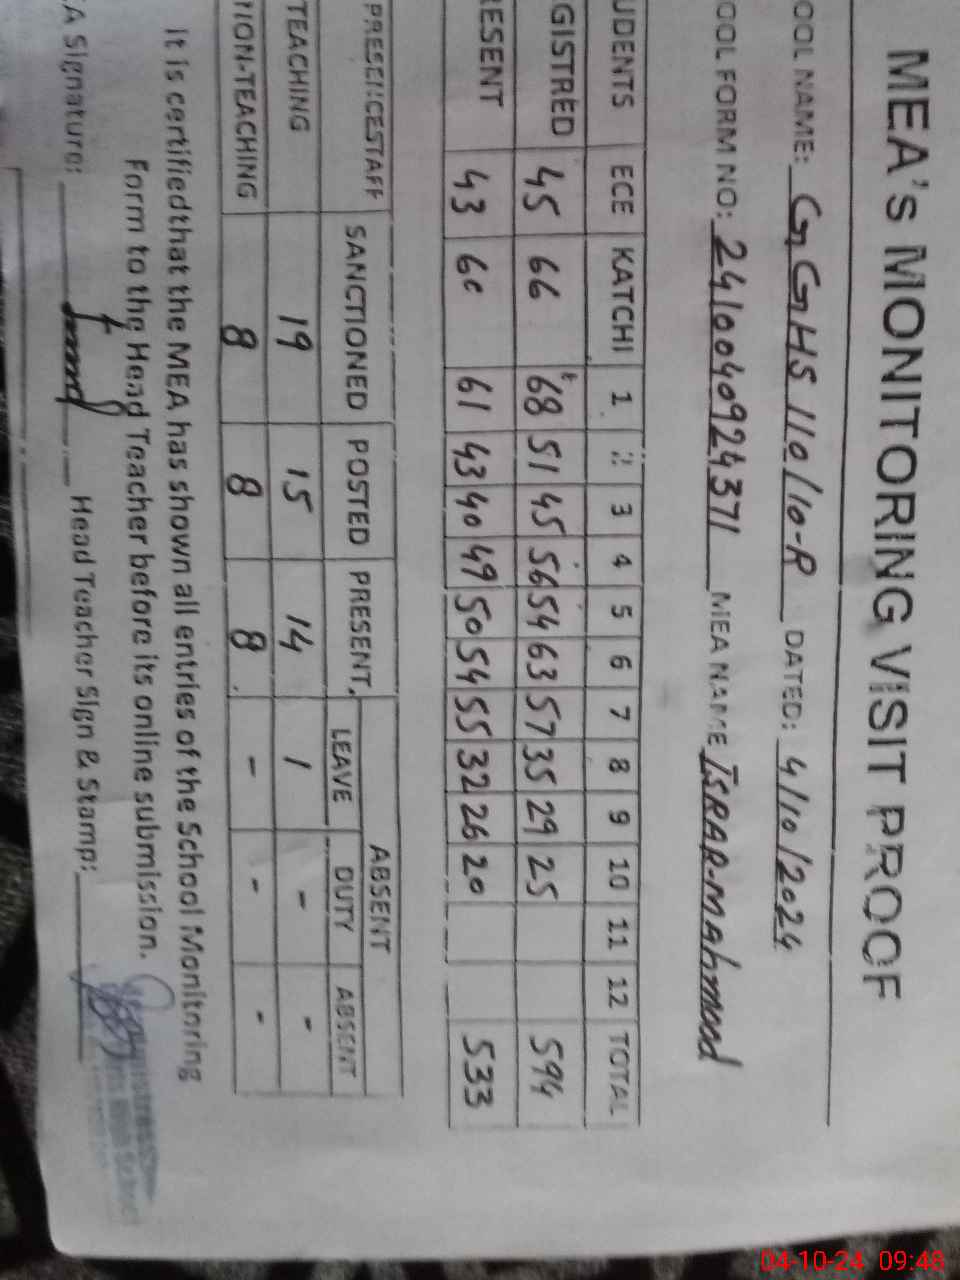 MEA's MONITORING VISIT PROOF
OOL NAME: GGHS 110/10-R DATED: 4/10/2024
OOL FORM NO: 2410040924371 MEA NAME ISRAR-mahmood
UDENTS ECE KATCHI 1 2 3 4 5 6 7 8 9 10 11 12 TOTAL
GISTRED 45 66 68 51 45 56 54 63 57 35 29 25 594
RESENT 43 60 61 43 40 49 50 54 55 32 26 20 533
SANCTIONED POSTED PRESENT ABSENT
LEAVE DUTY ABSENT
TEACHING 19 15 14 1 - -
TION-TEACHING 8 8 8 - - -
It is certified that the MEA has shown all entries of the School Monitoring
Form to the Head Teacher before its online submission.
A Signature: Head Teacher Sign & Stamp:
04-10-24 09:48